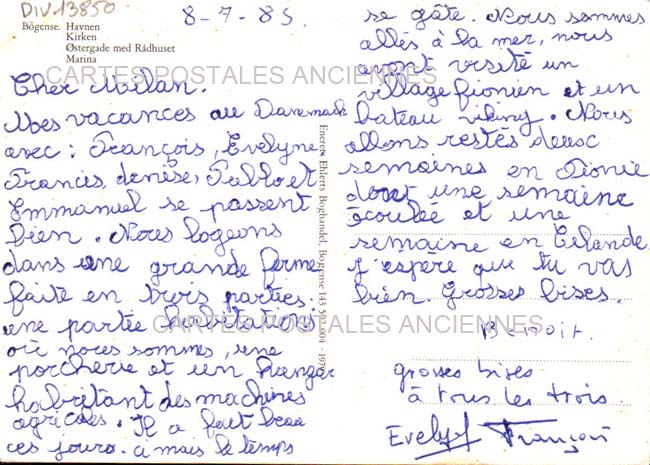 DIV13850
8-7-85
Bogense. Havnen
Kirken
Østergade med Rådhuset
Marina
CARTES POSTALES ANCIENNES
Cher Milan.
Mes vacances au Danemark
avec : François, Evelyne
Francis, denise, Pablo et
Emmanuel se passent
bien. Nous logeons
dans une grande ferme
faite en trois parties.
une partie habitations
où nous sommes, une
porcherie et un hangar
habritant des machines
agricoles. Il a fait beau
ces jours-ci mais le temps
Enerets Ehlerts Boghandel, Bogense 143 502 004 -197
se gâte. Nous sommes
allés à la mer, nous
avont visité un
village fionien et un
bateau viking. Nous
allons restés deux
semaines en Fionie
dont une semaine
écoulée et une
semaine en Zélande
J'espère que tu vas
bien. Grosses bises.
CARTES POSTALES ANCIENNES
grosses bises
à tous les trois
Evelyne François